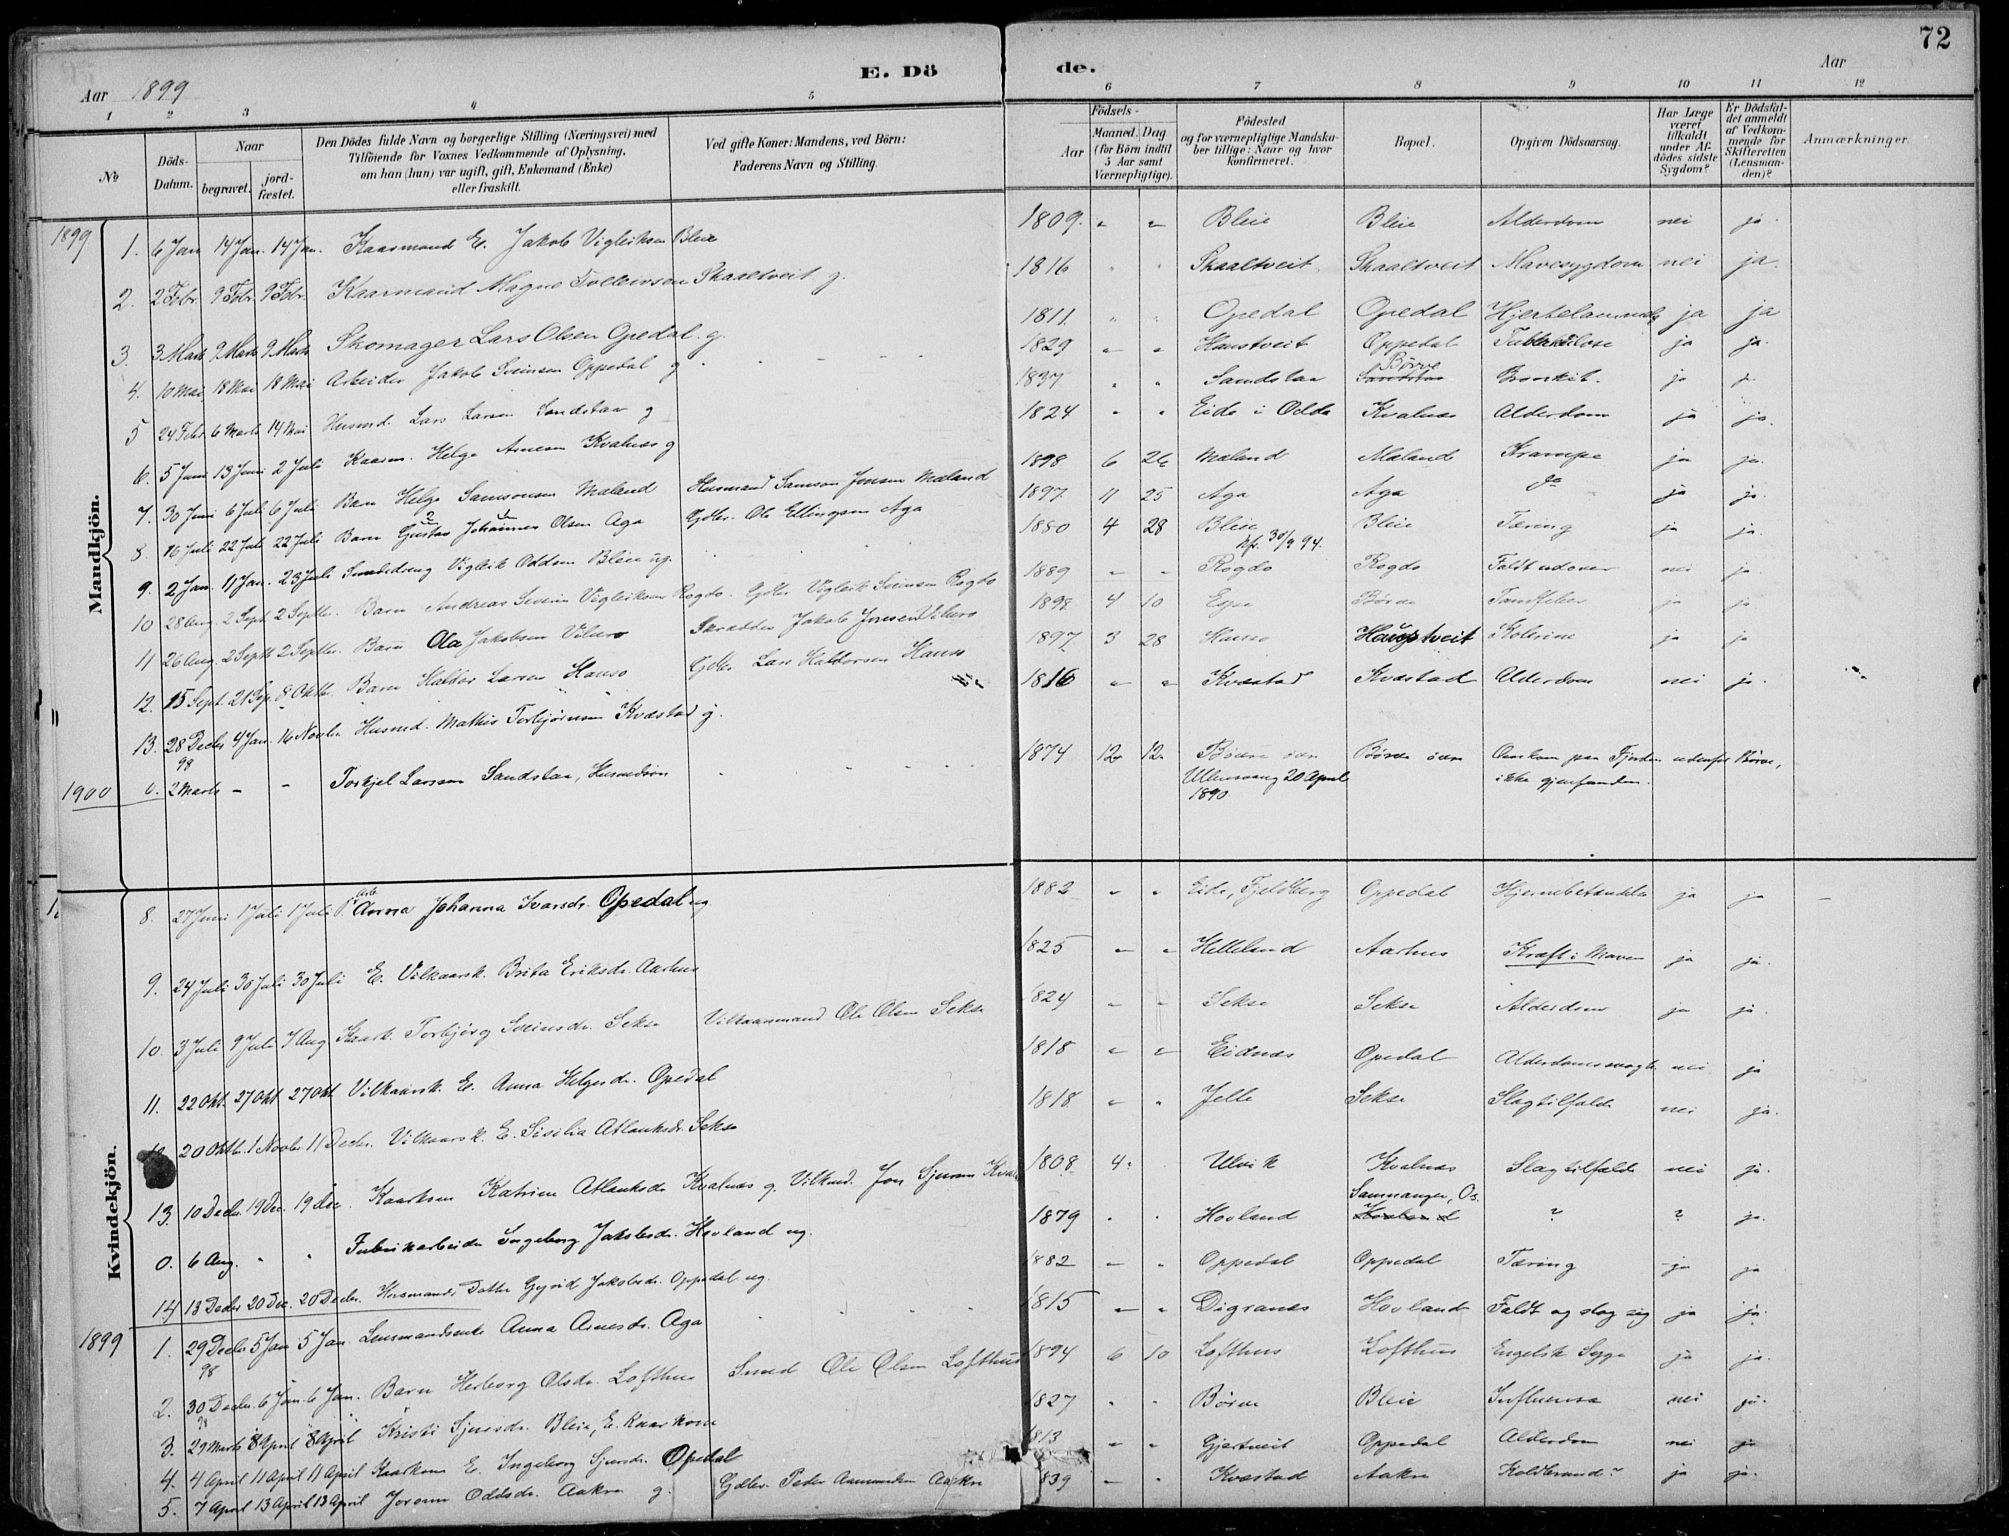 72
E. Dö de.
Aar 1899 Aar
1 2 3 4 5 6 7 8 9 10 11 12
№ Döds-Datum. Naar begravet. jord-fæstet. Den Dödes fulde Navn og borgerlige Stilling (Næringsvei) med Tilföiende for Voxnes Vedkommende af Oplysning, om han (hun) var ugift, gift, Enkemand (Enke) eller fraskilt. Ved gifte Koner: Mandens, ved Börn: Faderens Navn og Stilling. Födsels- Aar Maaned. Dag (for Börn indtil 5 Aar samt Værnepligtige). Födested og for værnepligtige Mandska-ber tillige: Naar og hvor konfirmeret. Bopæl. Opgiven Dödsaarsag. Har Læge været tilkaldt under Af-dödes sidste Sygdom? Er Dödsfal-det anmeldt af Vedkom-mende for Skifteretten (Lensman-den)? Anmærkninger.
Mandkjön.
1899 1. 6 Jan 14 Jan. 14 Jan. Kaarmand E. Jakob Vigleiksen Bleie 1809. " " Bleie Bleie Alderdom nei ja.
2. 2 Febr. 9 Febr. 9 Febr. Kaarmand Magne Tollevsen Skaaltveit g. 1816 " " Skaaltveit Skaaltveit Mavesygdom nei ja.
3 3 Marts 9 Marts 9 Marts Skomager Lars Olsen Opedal. g. 1811. " " Opedal Opedal ja ja
4. 10 Mai 18 Mai 18 Mai Arbeider Jakob Sveinsen Oppedal g 1829 " " Haustveit Oppedal Tuberkulose ja ja.
5 24 Febr. 6 Marts 14 Mai Husmd. Lars Larsen Sandstaa g 1837 " " Sandstaa Börve Sandstaa Bronkit. ja j.
6. 5 Juni 13 Juni 2 Juli Kaarm. Helge Arnesen Kvalnæs g 1824 " " Eide i Odda Kvalnæs Alderdom ja ja.
7. 30 Juni 6 Juli 6 Juli Barn Helge Samsonsen Maland Husmand Samson Jonsen Mæland 1898 6 26 Maland Mæland Krampe ja ja.
8 16 Juli 22 Juli 22 Juli Barn Gustav Johannes Olsen Aga Gdbr. Ole Ellingsen Aga 1897. 11 25 Aga Aga do ja ja.
9. 2 Jan. 11 Jan. 23 Juli Viglik Oddsen Bleie ug. 1880 4 28 Bleie kf. 30/9 94. Bleie Tæring ja ja.
10 28 Aug. 2 Sept 2 Septbr. Barn Andreas Severin Vigleiksen Rogdo. Gdbr Vigleik Sveinsen Rogdo 1889 — — Rogdo Rogdo Faldt udover nei ja
11 26 Aug. 2 Septb 2 Septbr. Barn Ola Jakobsen Vilure Skrædder Jakob Jonsen Vilure 1898 4 10 Espe Børve ja ja
12. 15 Sept. 21 Sep. 8 Oktbr. Barn Haldor Larsen Hauso Gdbr. Lars Haldorsen Hauso 1897 3 28 Hauso Haustveit Kolerine ja ja
13. 28 Decbr 98 4 Jan. 16 Novbr Husmd. Mathis Torbjörnsen Kvæstad g. 1816 " " Kvæstad Kvæstad Alderdom nei ja.
1900 0. 2 Marts — — Torkjel Larsen Sandstaa, Husmdssön 1874 12 12 Börve Ullensvang 20 April 1890. Börve Omkom paa Fjorden udenfor Börve, ikke gjenfunden.
Kvindekjön.
8. 27 Juni 1 Juli 1 Juli Anna Johanna Ivarsdr. Opedal ug 1882 " " Eide, Fjeldberg Oppedal Hjernebetændelse ja ja —
9. 24 Juli 30 Juli 30 Juli E. Vilkaarsk. Brita Eriksdr. Aarhus 1825 " " Helleland Aarhus Kræft i Maven ja ja.
10. 3 Juli 9 Juli 7 Aug Kaark. Torbjörg Sveinsdr. Sekse Vilkaarmand Ole Olsen Sekse 1824 " " Sekse Sekse Alderdom ja ja.
11. 22 Okt. 27 Okt. 27 Okt. Vilkaarsk. E. Anna Helgesdr. Opedal 1818 " " Eidnæs Opedal nei ja
20 Oktbr. 1 Novbr. 11 Decbr. Vilkaarsk. E. Sisilia Atlanksdr. Sekse 1818 " " Jelle Sekse Slagtilfælde nei ja.
13. 10 Decbr. 19 Dec. 19 Dec. Kaarkone Katrine Atlanksdr Kvalnæs g. Vilkmd. Jon Sjursen Kval 1808 4. Ulvik Kvalnæs Slagtilfælde nei ja.
0. 6 Aug. " " Fabrikarbeider Ingeborg Jakobsdr. Hovland ug. 1879 . . Hovland Samnanger, Os. Hovland ? ? ja.
14. 13 Decbr 20 Dec. 20 Decbr. Husmands Datter Gyrid Jakobsdr. Oppedal ug. 1882 — " Oppedal Oppedal Tæring ja ja
1899 1. 29 Decbr 98 5 Jan 5 Jan Lensmandsenke Anna Arnesdr. Aga 1815 — " Digranæs Hovland Faldt og slog sig ja ja.
2. 30 Decbr. 98 6 Jan. 6 Jan. Barn Herborg Olsdr. Lofthus Smed Ole Olsen Lofthus 1894 6 10 Lofthus Lofthus Engelsk Syge ja ja.
3. 29 Marts 8 April 8 April Kristi Sjursdr. Bleie, E. Kaarkone 1827 " " Börve Bleie Influensa nei ja.
4. 4 April 11 April 11 April Kaarkone E. Ingeborg Sjursdr. Opedal 1813 " " Gjertveit Oppedal Alderdom nei ja
5. 7 April 13 April 13 April Joronn Oddsdr. Aakre g. Gdbr. Peder Aamundsen Aakre 839 — " Kvæstad Aakre Koldbrand? ja ja.